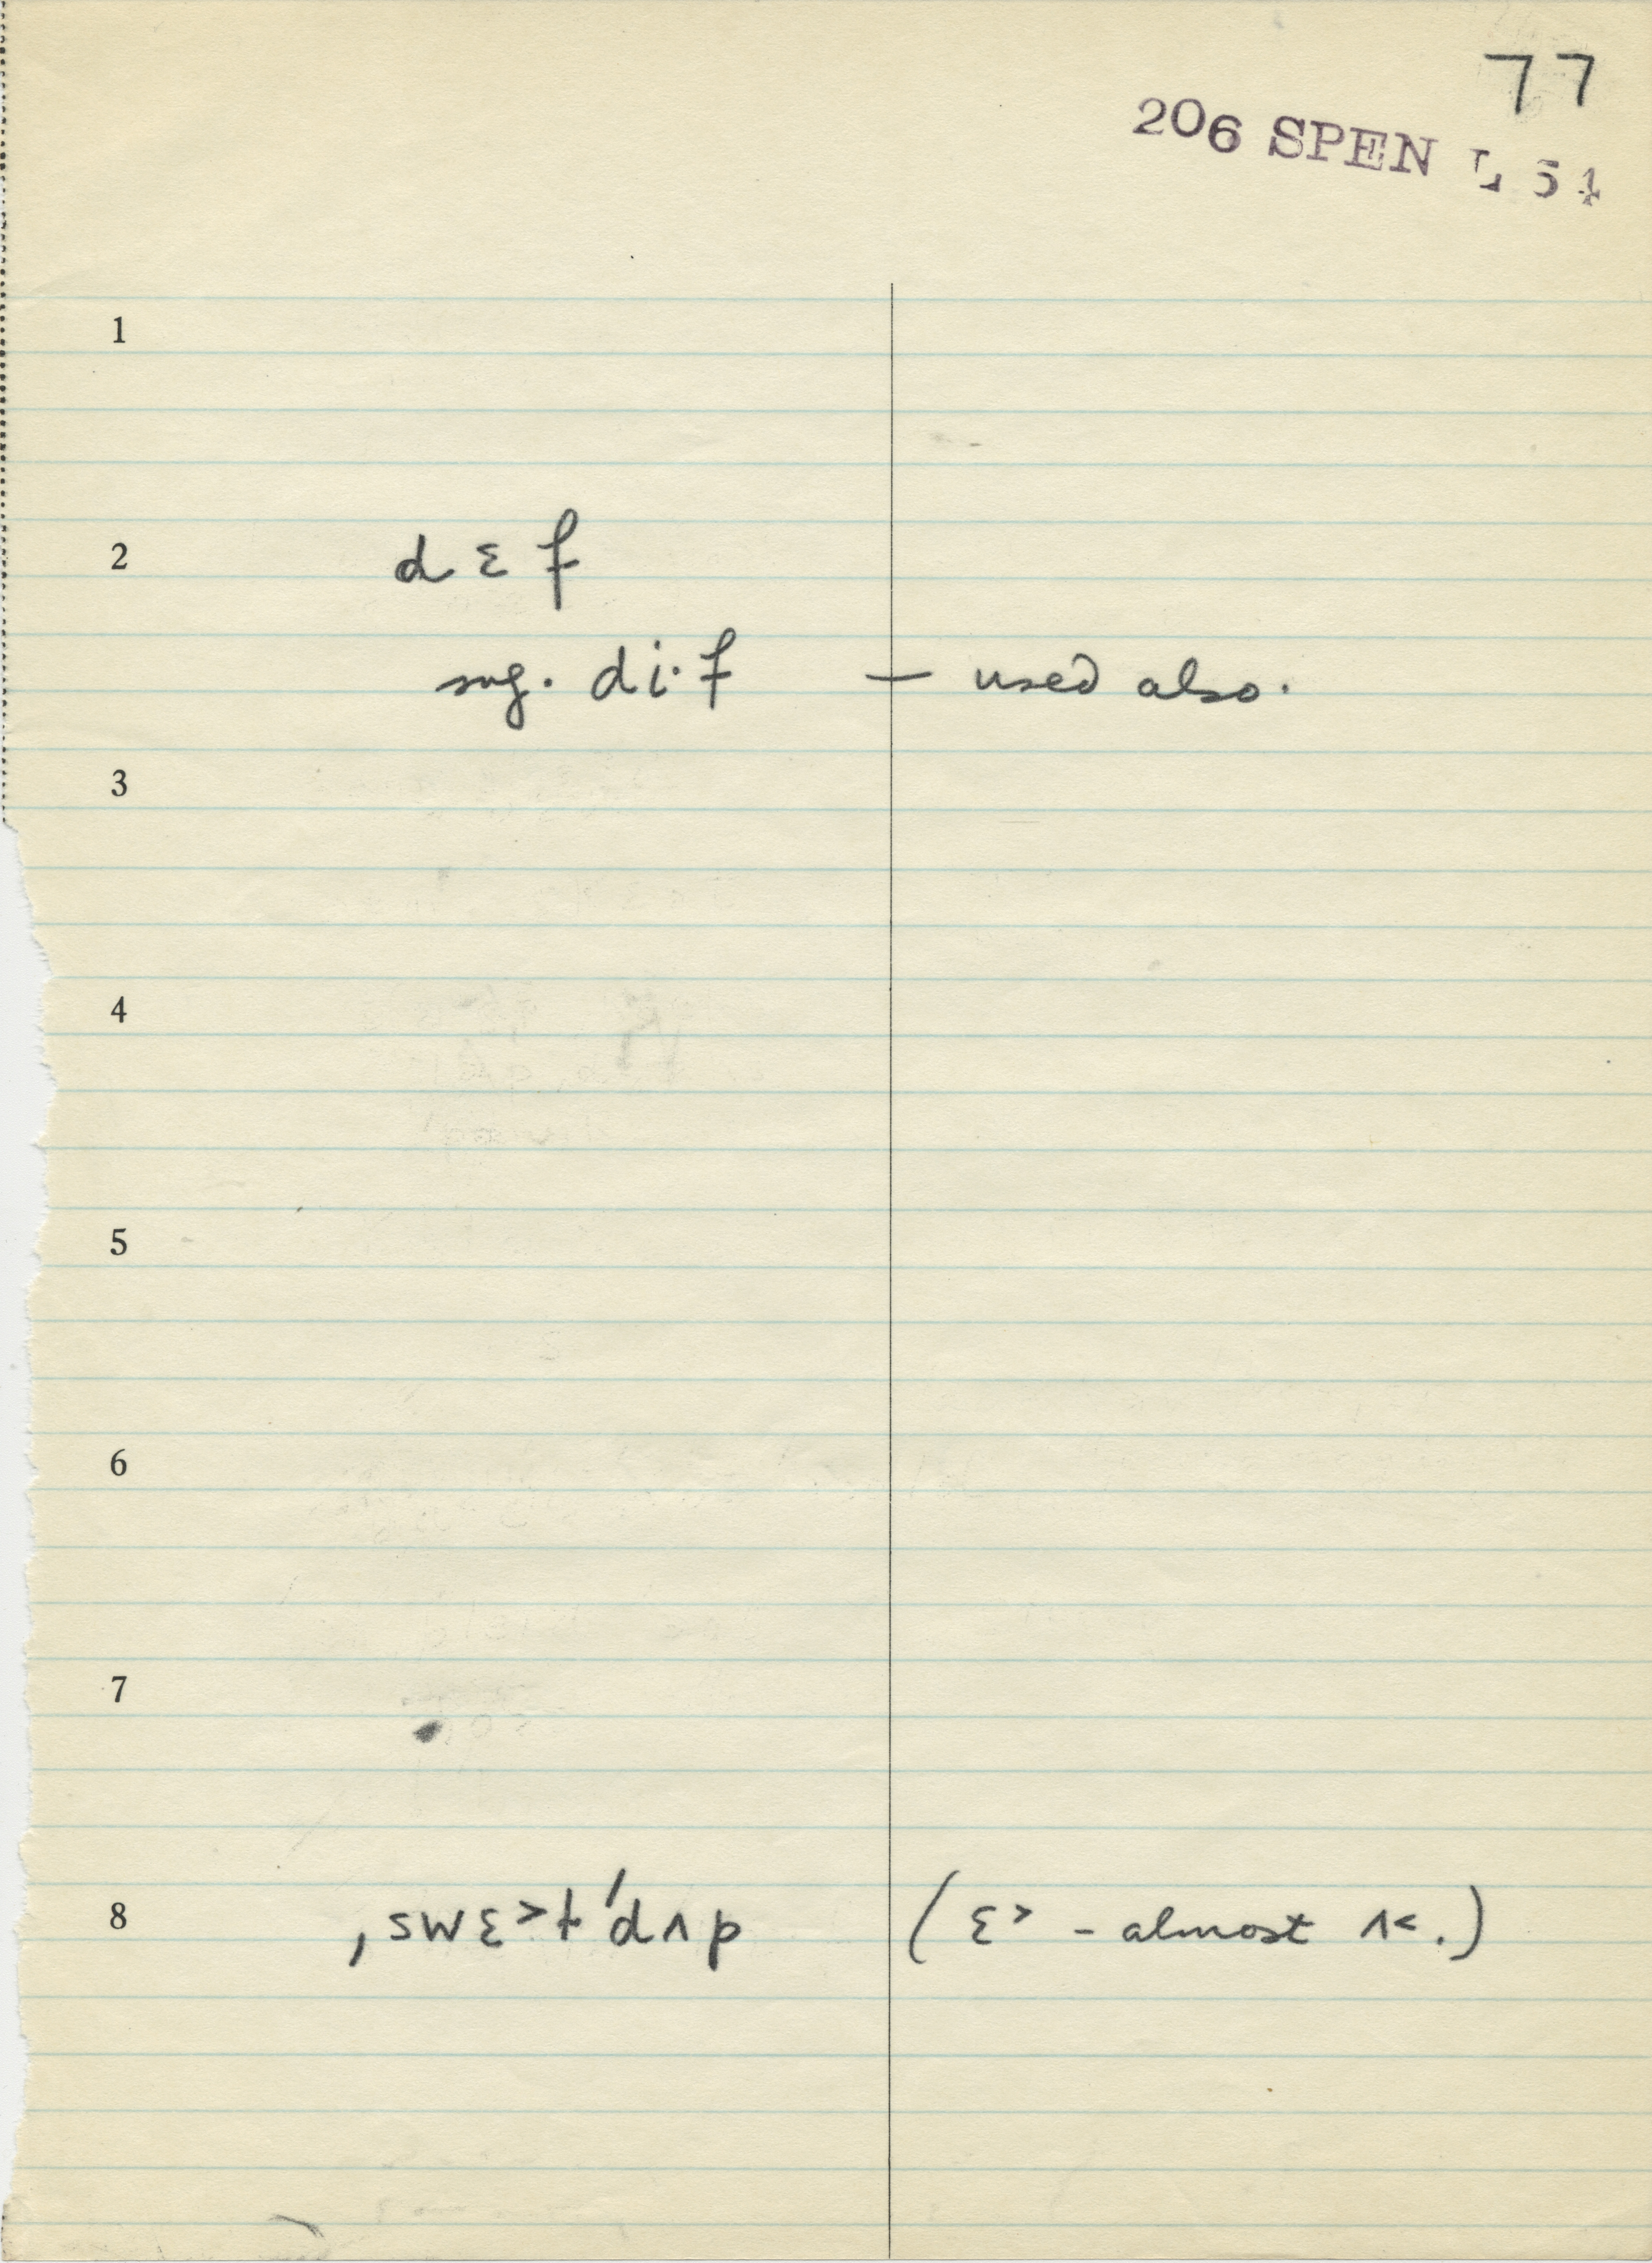 77
206 SPEN L 54
1
2 dɛf
sug. di·f — used also.
3
4
5
6
7
8 ˌswɛ˃tˈdʌp (ɛ˃ - almost ʌ˂.)